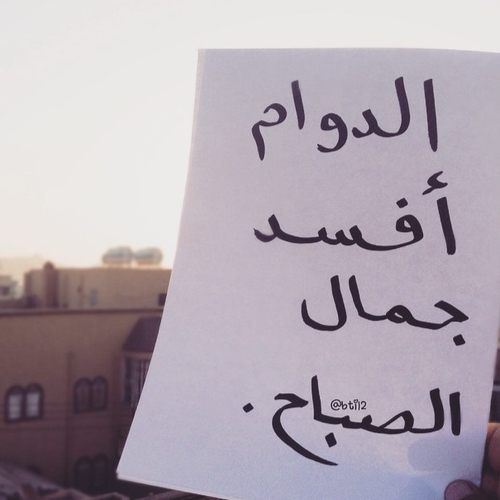 الدوام
أفسد
جمال
الصباح.
@bti12